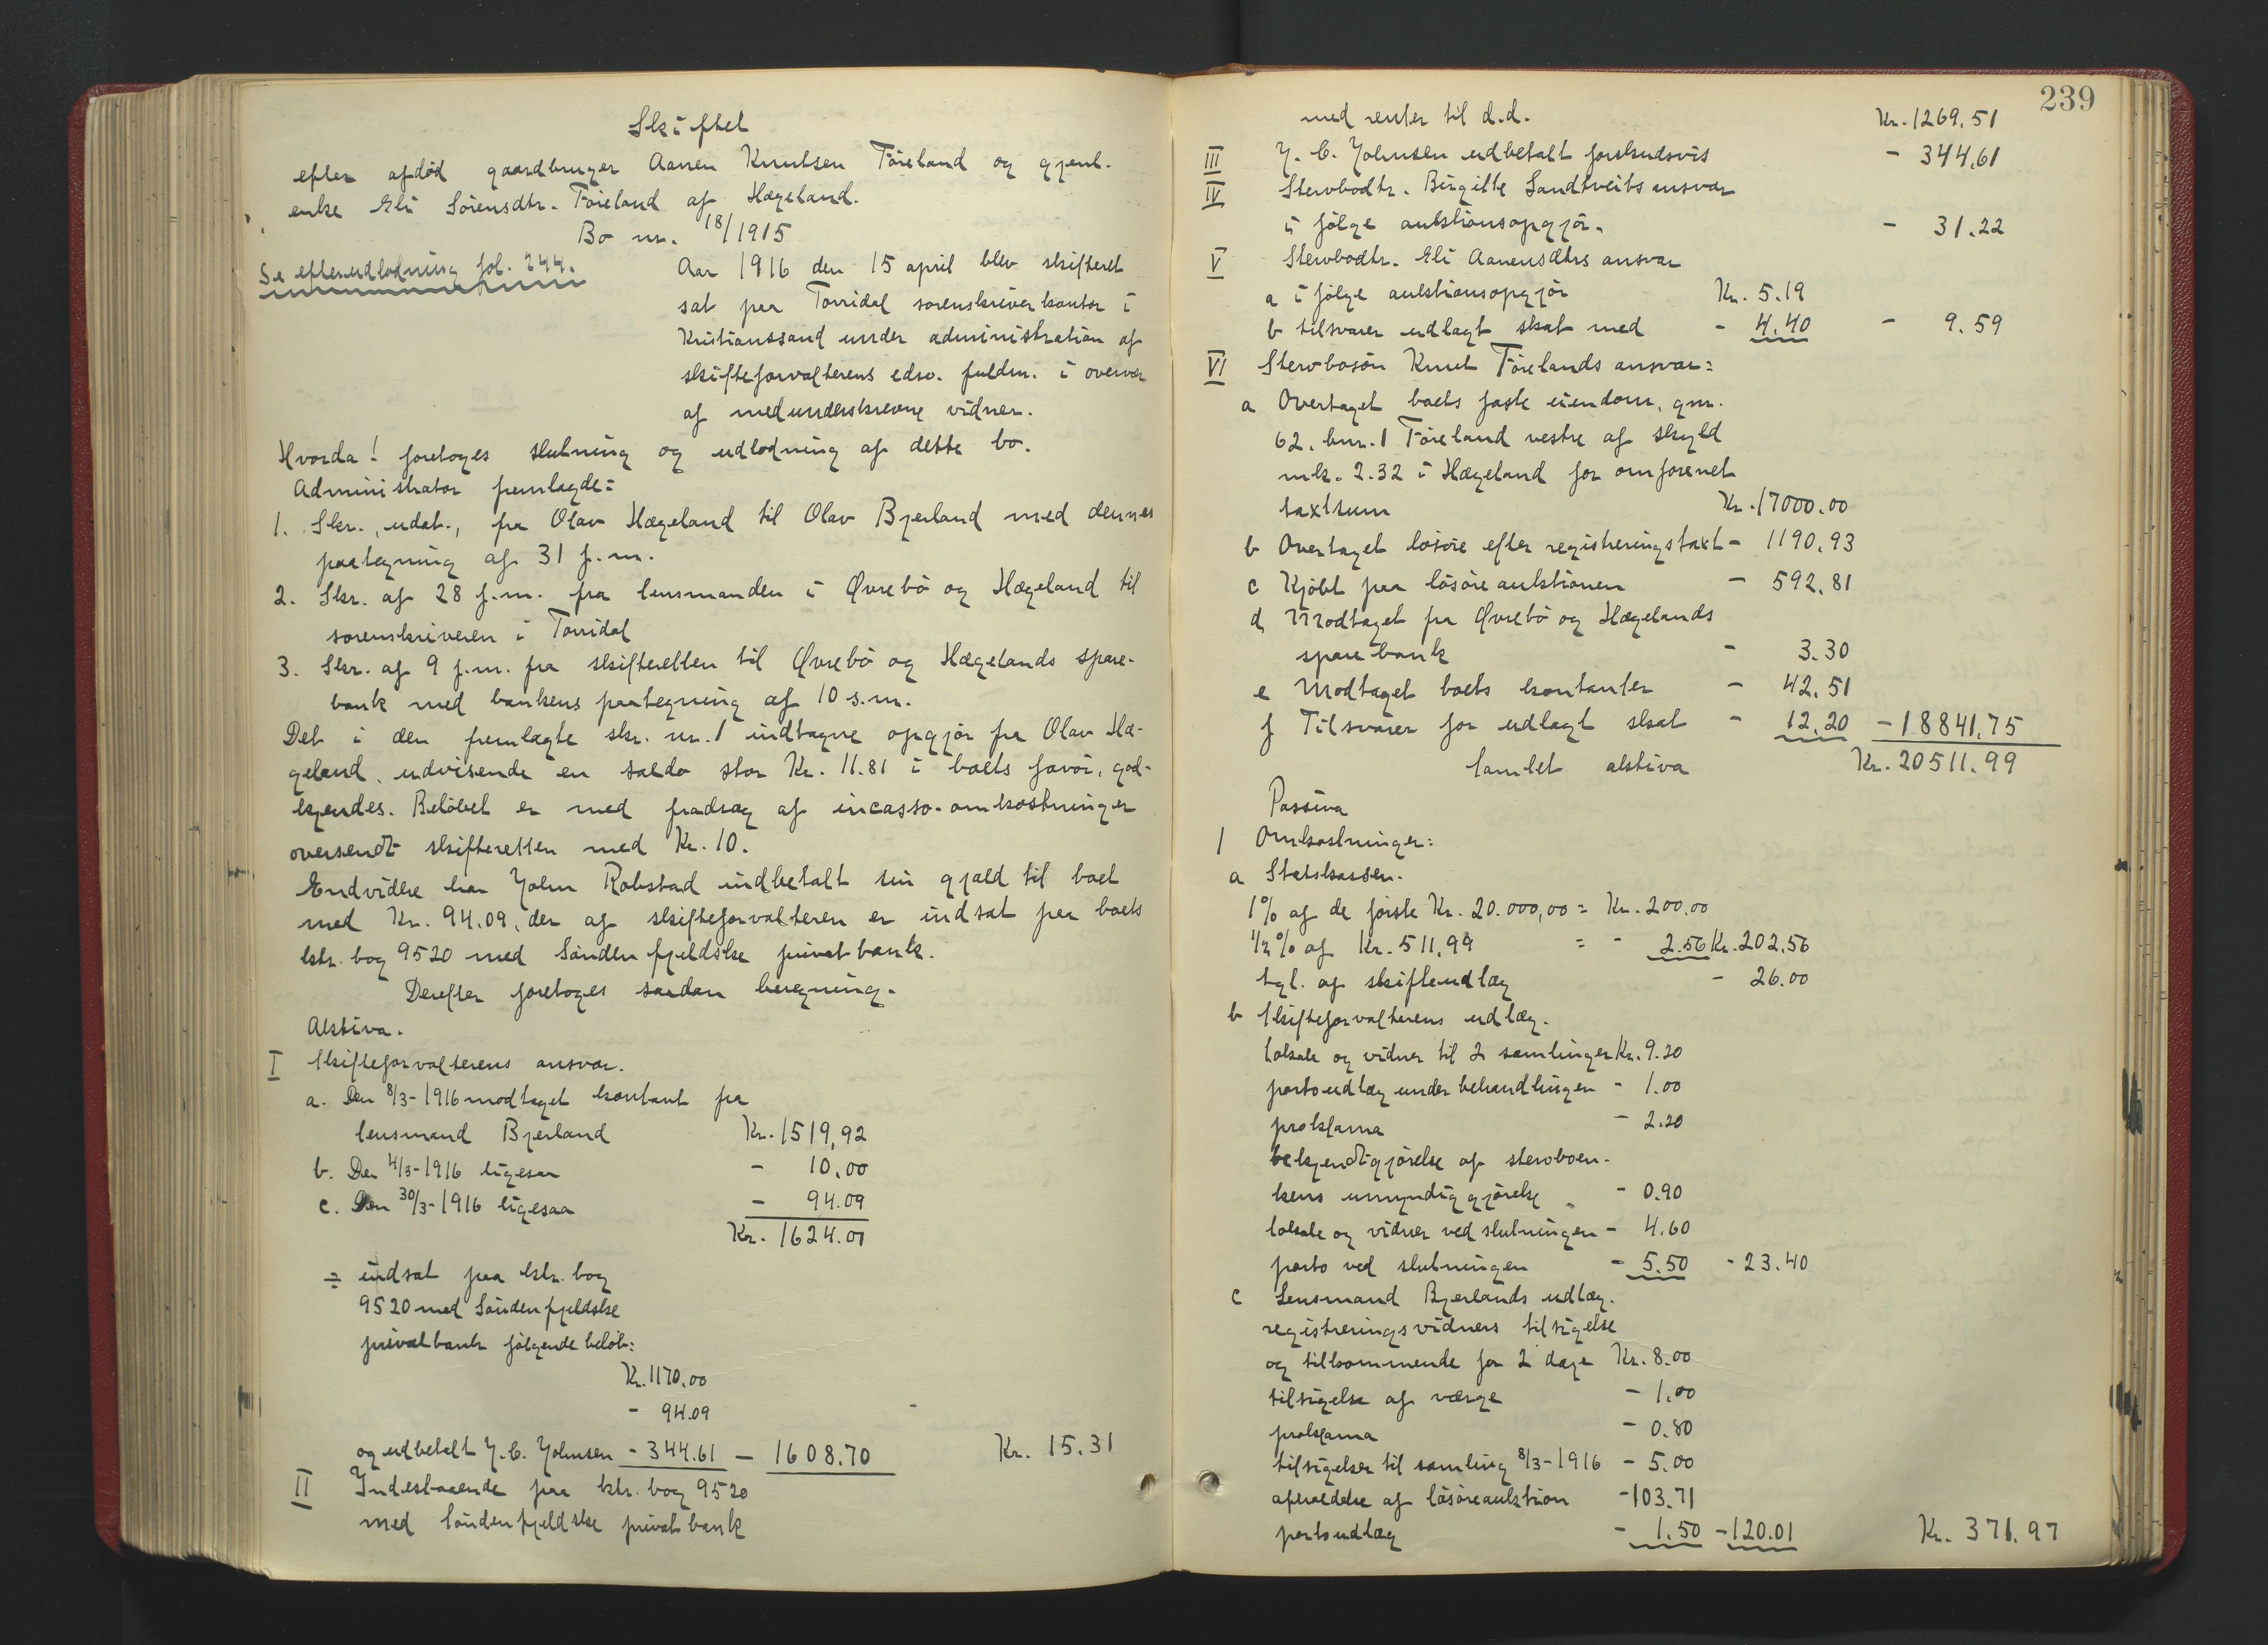 Skiftet
efter afdød gaardbruger Aanen Knutsen Föreland og gjenl.
enke Eli Sörensdtr. Föreland af Hægeland.
Bo nr. 18/1915
Se efterudlodning fol. 244.
Aar 1916 den 15 april blev skifteret
sat paa Torridal sorenskriverkontor i
Kristianssand under administration af
skifteforvalterens edsv. fuldm. i overvær
af medunderskrevne vidner.
Hvorda! foretoges slutning og udlodning af dette bo.
Administrator fremlagde:
1. Skr., udat., fra Olav Hægeland til Olav Bjerland med dennes
paategning af 31 f.m.
2. Skr. af 28 f.m. fra lensmanden i Øvrebö og Hægeland til
sorenskriveren i Torridal
3. Skr. af 9 f.m. fra skifteretten til Øvrebö og Hægelands spare-
bank med bankens paategning af 10 s.m.
Det i den fremlagte skr. nr. 1 indtagne opgjör fra Olav Hæ-
geland, udvisende en saldo stor Kr. 11.81 i boets favör, god-
kjendes. Belöbet er med fradrag af incasso-omkostninger
oversendt skifteretten med Kr. 10.
Endvidere har John Robstad indbetalt sin gjæld til boet
med Kr. 94.09, der af skifteforvalteren er indsat paa boets
ktr. bog 9520 med Söndenfjeldske privatbank.
Derefter foretoges saadan beregning.
Aktiva.
I Skifteforvalterens ansvar.
a. Den 8/3-1916 modtaget kontant fra
lensmand Bjerland Kr. 1519,92
b. Den 4/3-1916 ligesaa - 10,00
c. Den 30/3-1916 ligesaa - 94.09
Kr. 1624.01
÷ indsat paa ktr. bog
9520 med Söndenfjeldske
privatbank følgende belöb:
Kr. 1170.00
- 94.09
og udbetalt J. C. Johnsen - 344.61 - 1608.70 Kr. 15.31
II Indestaaende paa ktr. bog 9520
med Söndenfjeldske privatbank
239
med renter til d.d. Kr. 1269.51
III J. C. Johnsen udbetalt forskudsvis - 344.61
IV Stervbodtr. Birgitte Sandtveits ansvar
i følge auktionsopgjör. - 31.22
V Stervbodtr. Eli Aanensdtrs ansvar
a i følge auktionsopgjör Kr. 5.19
b tilsvarer udlagt skat med - 4.40 - 9.59
VI Stervbosön Knut Förelands ansvar:
a Overtaget boets faste eiendom, gnr.
62, bnr. 1 Föreland vestre af skyld
mk. 2.32 i Hægeland for omforenet
taxtsum Kr. 17000.00
b Overtaget lösöre efter registreringstaxt - 1190.93
c Kjöbt paa lösöreauktionen - 592.81
d Modtaget fra Øvrebö og Hægelands
sparebank - 3.30
e Modtaget boets kontanter - 42.51
f Tilsvarer for udlagt skat - 12.20 - 18841.75
Samlet aktiva Kr. 20511.99
Passiva
1 Omkostninger:
a Statskassen.
1% af de förste Kr. 20.000,00 = Kr. 200.00
1/2% af Kr. 511,99 = - 2.56 Kr. 202.56
tgl. af skifteudlæg - 26.00
b Skifteforvalterens udlæg.
lokale og vidner til 2 samlinger Kr. 9.20
portoudlæg under behandlingen - 1.00
proklama - 2.20
bekjendtgjörelse af stervboen-
kens umyndiggjörelse - 0.90
lokale og vidner ved slutningen - 4.60
porto ved slutningen - 5.50 - 23.40
c Lensmand Bjerlands udlæg.
registreringsvidners tilsigelse
og tilkommende for 2 dage Kr. 8.00
tilsigelse af værge - 1.00
proklama - 0.80
tilsigelser til samling 8/3-1916 - 5.00
afholdelse af lösöreauktion - 103.71
portoudlæg - 1.50 - 120.01 Kr. 371.97